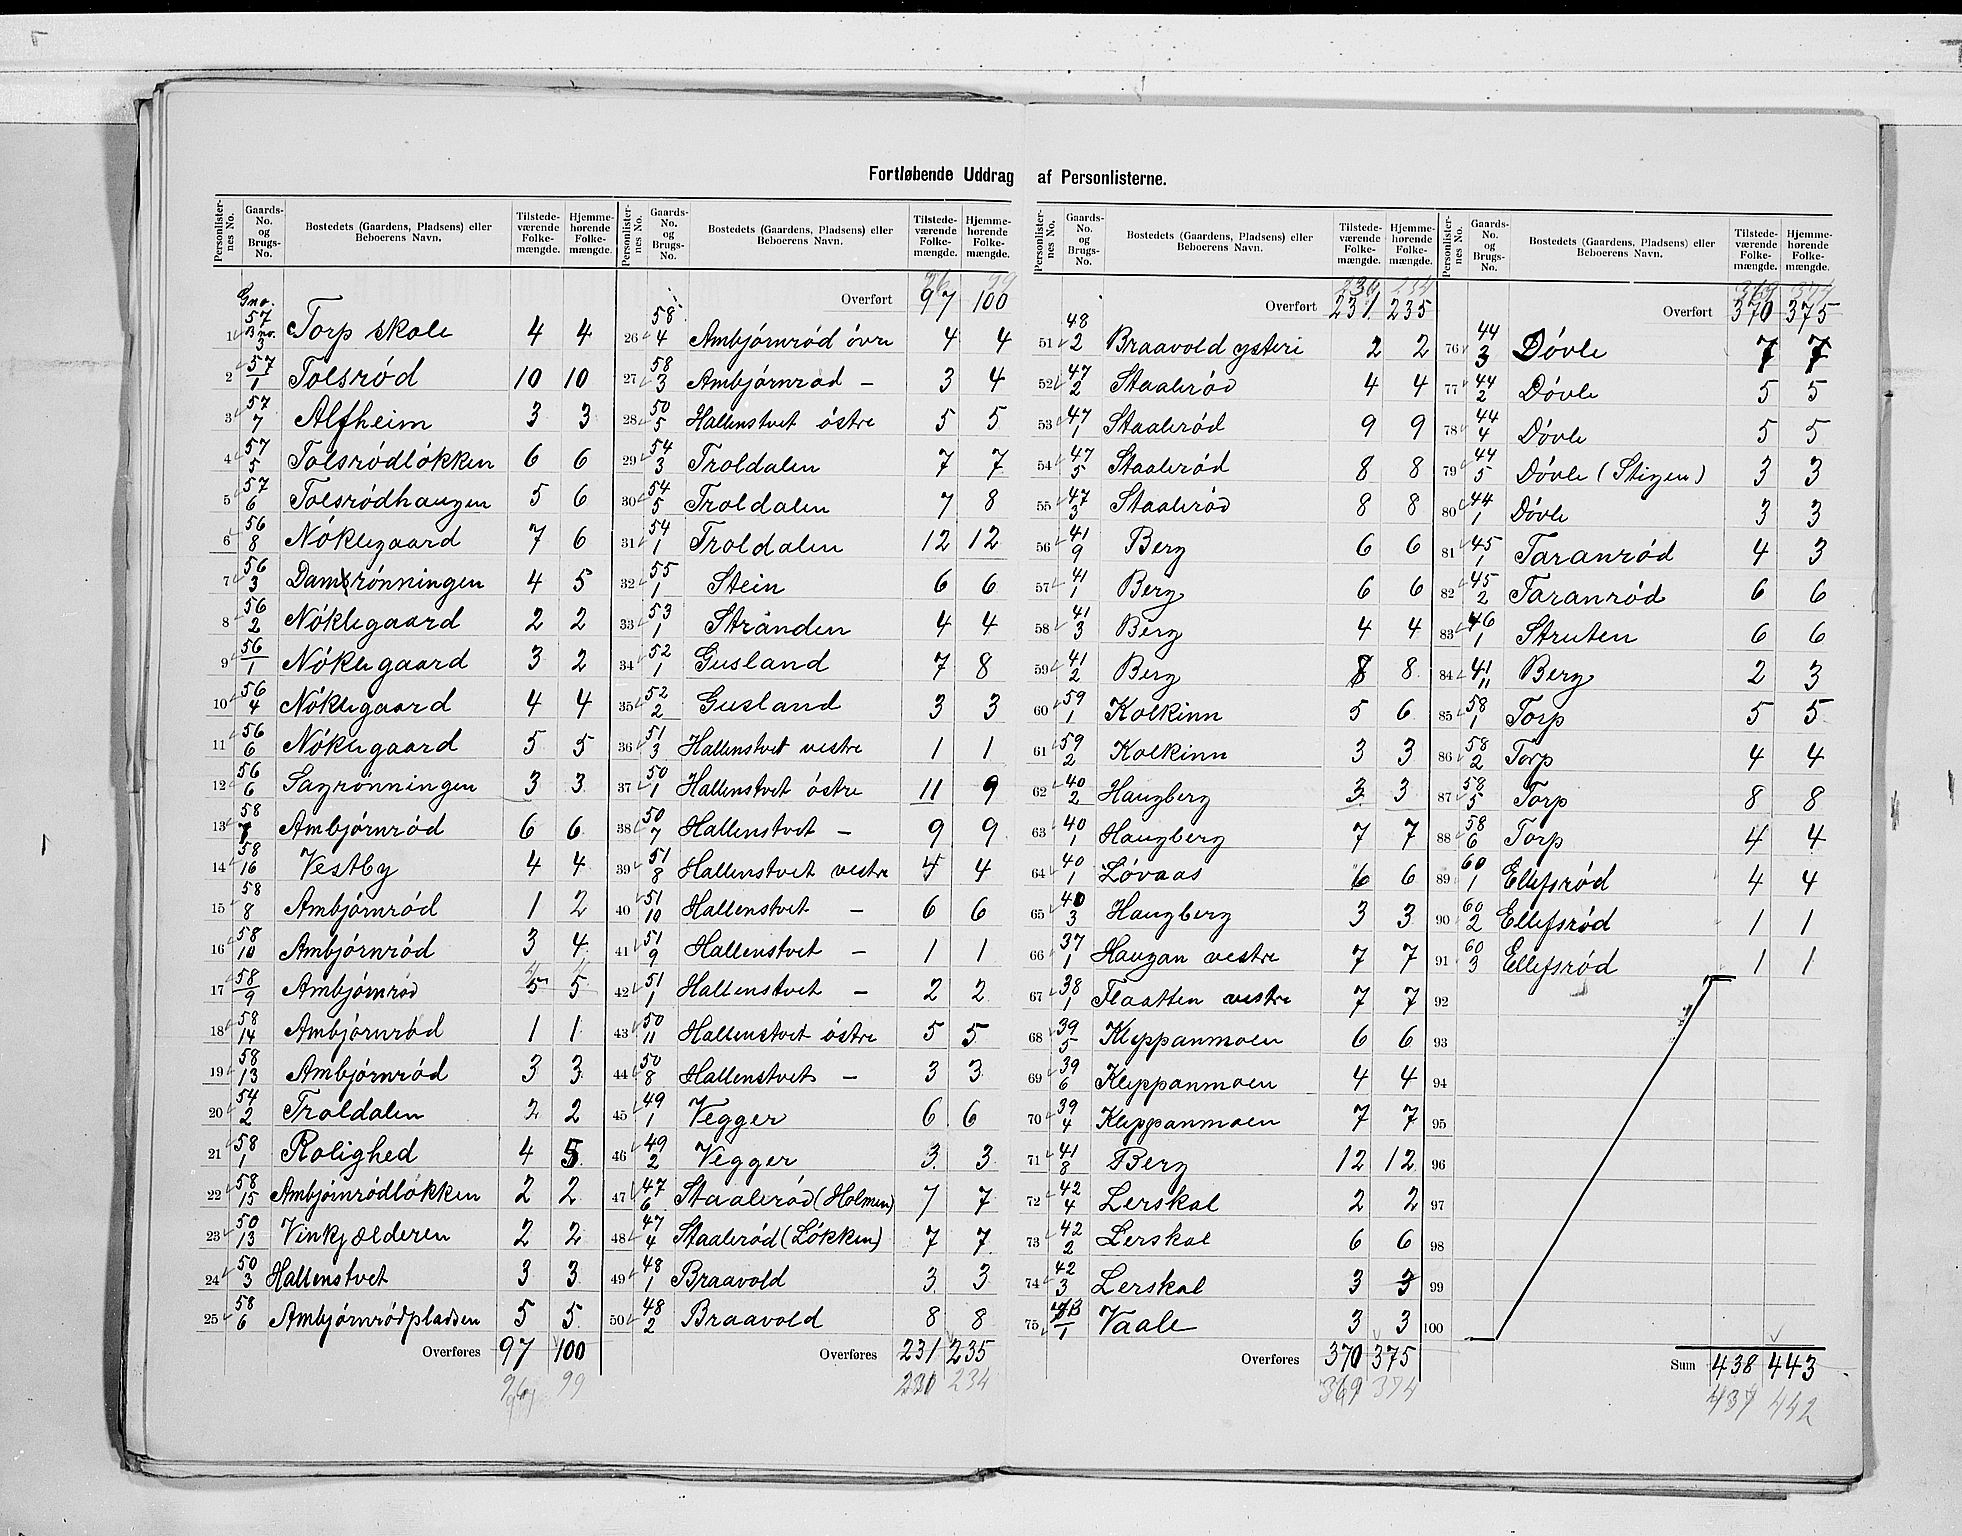 Fortløbende Uddrag af Personlisterne.
Personlisternes No. | Gaards-No. og Brugs-No. | Bostedets (Gaardens, Pladsens) eller Beboerens Navn. | Tilstedeværende Folkemængde. | Hjemmehørende Folkemængde.
1 Gno. 57 Bno. 3 Torp skole 4 4
2 57/1 Tolsrød 10 10
3 57/7 Alfheim 3 3
4 57/5 Tolsrødløkken 6 6
5 57/6 Tolsrødhaugen 5 6
6 56/8 Nøklegaard 7 6
7 56/3 Damsrønningen 4 5
8 56/2 Nøklegaard 2 2
9 56/1 Nøklegaard 3 2
10 56/4 Nøklegaard 4 4
11 56/6 Nøklegaard 5 5
12 56/6 Sagrønningen 3 3
13 58/7 Ambjørnrød 6 6
14 58/16 Vestby 4 4
15 58/8 Ambjørnrød 1 2
16 58/10 Ambjørnrød 3 4
17 58/9 Ambjørnrød 5 5
18 58/14 Ambjørnrød 1 1
19 58/13 Ambjørnrød 3 3
20 54/2 Troldalen 2 2
21 58/1 Rolighed 4 5
22 58/15 Ambjørnrødløkken 2 2
23 50/13 Vinkjælderen 2 2
24 50/3 Hallenstvet 3 3
25 58/6 Ambjørnrødpladsen 5 5
Overføres 97 100
96 99
Personlisternes No. | Gaards-No. og Brugs-No. | Bostedets (Gaardens, Pladsens) eller Beboerens Navn. | Tilstedeværende Folkemængde. | Hjemmehørende Folkemængde.
96 99
Overført 97 100
26 58/4 Ambjørnrød øvre 4 4
27 58/3 Ambjørnrød — 3 4
28 50/5 Hallenstvet østre 5 5
29 54/3 Troldalen 7 7
30 54/5 Troldalen 7 8
31 54/1 Troldalen 12 12
32 55/1 Stein 6 6
33 53/1 Stranden 4 4
34 52/1 Gusland 7 8
35 52/2 Gusland 3 3
36 51/3 Hallenstvet vestre 1 1
37 50/1 Hallenstvet østre 11 9
38 50/7 Hallenstvet — 9 9
39 51/8 Hallenstvet vestre 4 4
40 51/10 Hallenstvet — 6 6
41 51/9 Hallenstvet — 1 1
42 51/1 Hallenstvet — 2 2
43 50/11 Hallenstvet østre 5 5
44 50/8 Hallenstvet — 3 3
45 49/1 Vegger 6 6
46 49/2 Vegger 3 3
47 47/6 Staalerød (Holmen) 7 7
48 47/4 Staalerød (Løkken) 7 7
49 48/1 Braavold 3 3
50 48/2 Braavold 8 8
Overføres 231 235
230 234
Personlisternes No. | Gaards-No. og Brugs-No. | Bostedets (Gaardens, Pladsens) eller Beboerens Navn. | Tilstedeværende Folkemængde. | Hjemmehørende Folkemængde.
230 234
Overført 231 235
51 48/2 Braavold ysteri 2 2
52 47/2 Staalerød 4 4
53 47/1 Staalerød 9 9
54 47/5 Staalerød 8 8
55 47/3 Staalerød 8 8
56 41/9 Berg 6 6
57 41/1 Berg 6 6
58 41/3 Berg 4 4
59 41/2 Berg 8 8
60 59/1 Kolkinn 5 6
61 59/2 Kolkinn 3 3
62 40/2 Haugberg 3 3
63 40/1 Haugberg 7 7
64 40/1 Løvaas 6 6
65 40/3 Haugberg 3 3
66 37/1 Haugan vestre 7 7
67 38/1 Flaatten vestre 7 7
68 39/5 Kleppanmoen 6 6
69 39/6 Kleppanmoen 4 4
70 39/4 Kleppanmoen 7 7
71 41/8 Berg 12 12
72 42/4 Lerskal 2 2
73 42/2 Lerskal 6 6
74 42/3 Lerskal 3 3
75 Vaale 3 3
Overføres 370 375
369 374
Personlisternes No. | Gaards-No. og Brugs-No. | Bostedets (Gaardens, Pladsens) eller Beboerens Navn. | Tilstedeværende Folkemængde. | Hjemmehørende Folkemængde.
369 374
Overført 370 375
76 44/3 Døvle 7 7
77 44/2 Døvle 5 5
78 44/4 Døvle 5 5
79 44/5 Døvle (Stigen) 3 3
80 44/1 Døvle 3 3
81 45/1 Taranrød 4 3
82 45/2 Taranrød 6 6
83 46/1 Struten 6 6
84 41/11 Berg 2 3
85 58/1 Torp 5 5
86 58/2 Torp 4 4
87 58/5 Torp 8 8
88 58/6 Torp 4 4
89 60/1 Ellefsrød 4 4
90 60/2 Ellefsrød 1 1
91 60/3 Ellefsrød 1 1
92
93
94
95
96
97
98
99
100
Sum 438 443
437 442